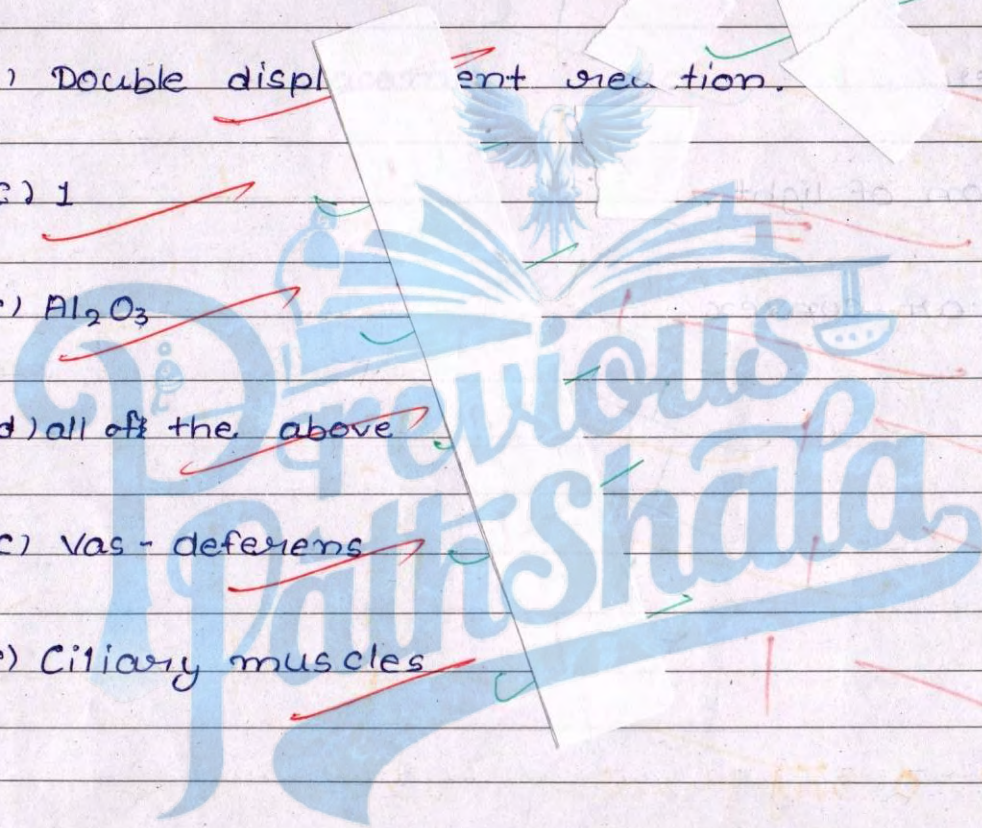 ) Double displacement reaction.
c) 1
) Al₂O₃
d) all of the above
c) Vas - deferens
) Ciliary muscles
Previous
PathShala